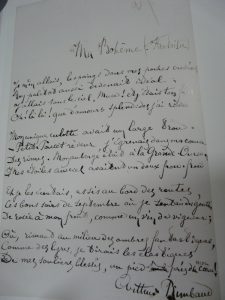 Ma Bohême (Fantaisie)
Je m'en allais, les poings dans mes poches crevées;
Mon paletot aussi devenait idéal;
J'allais sous le ciel, Muse! et j'étais ton féal;
Oh! là! là! que d'amours splendides j'ai rêvées!
Mon unique culotte avait un large trou.
- Petit-Poucet rêveur, j'égrenais dans ma course
Des rimes. Mon auberge était à la Grande Ourse.
- Mes étoiles au ciel avaient un doux frou-frou
Et je les écoutais, assis au bord des routes,
Ces bons soirs de septembre où je sentais des gouttes
De rosée à mon front, comme un vin de vigueur;
Où, rimant au milieu des ombres fantastiques,
Comme des lyres, je tirais les élastiques
De mes souliers blessés, un pied près de mon coeur!
Arthur Rimbaud